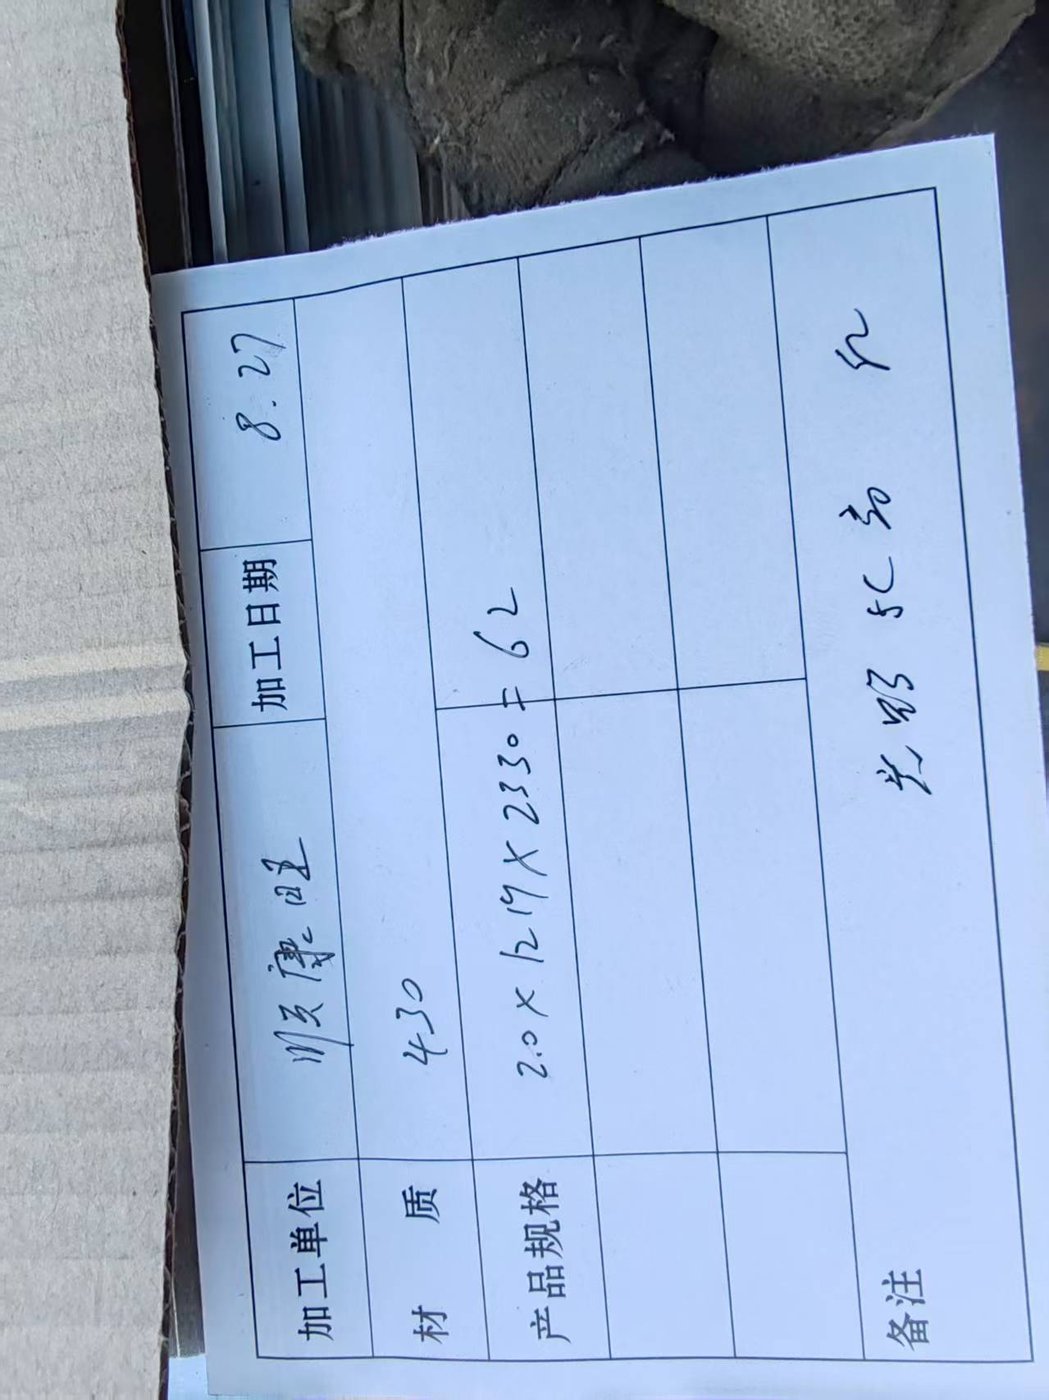 加工单位 顺康旺 加工日期 8.27
材 质 430
产品规格 2.0×1219×2330=62
备注
5C